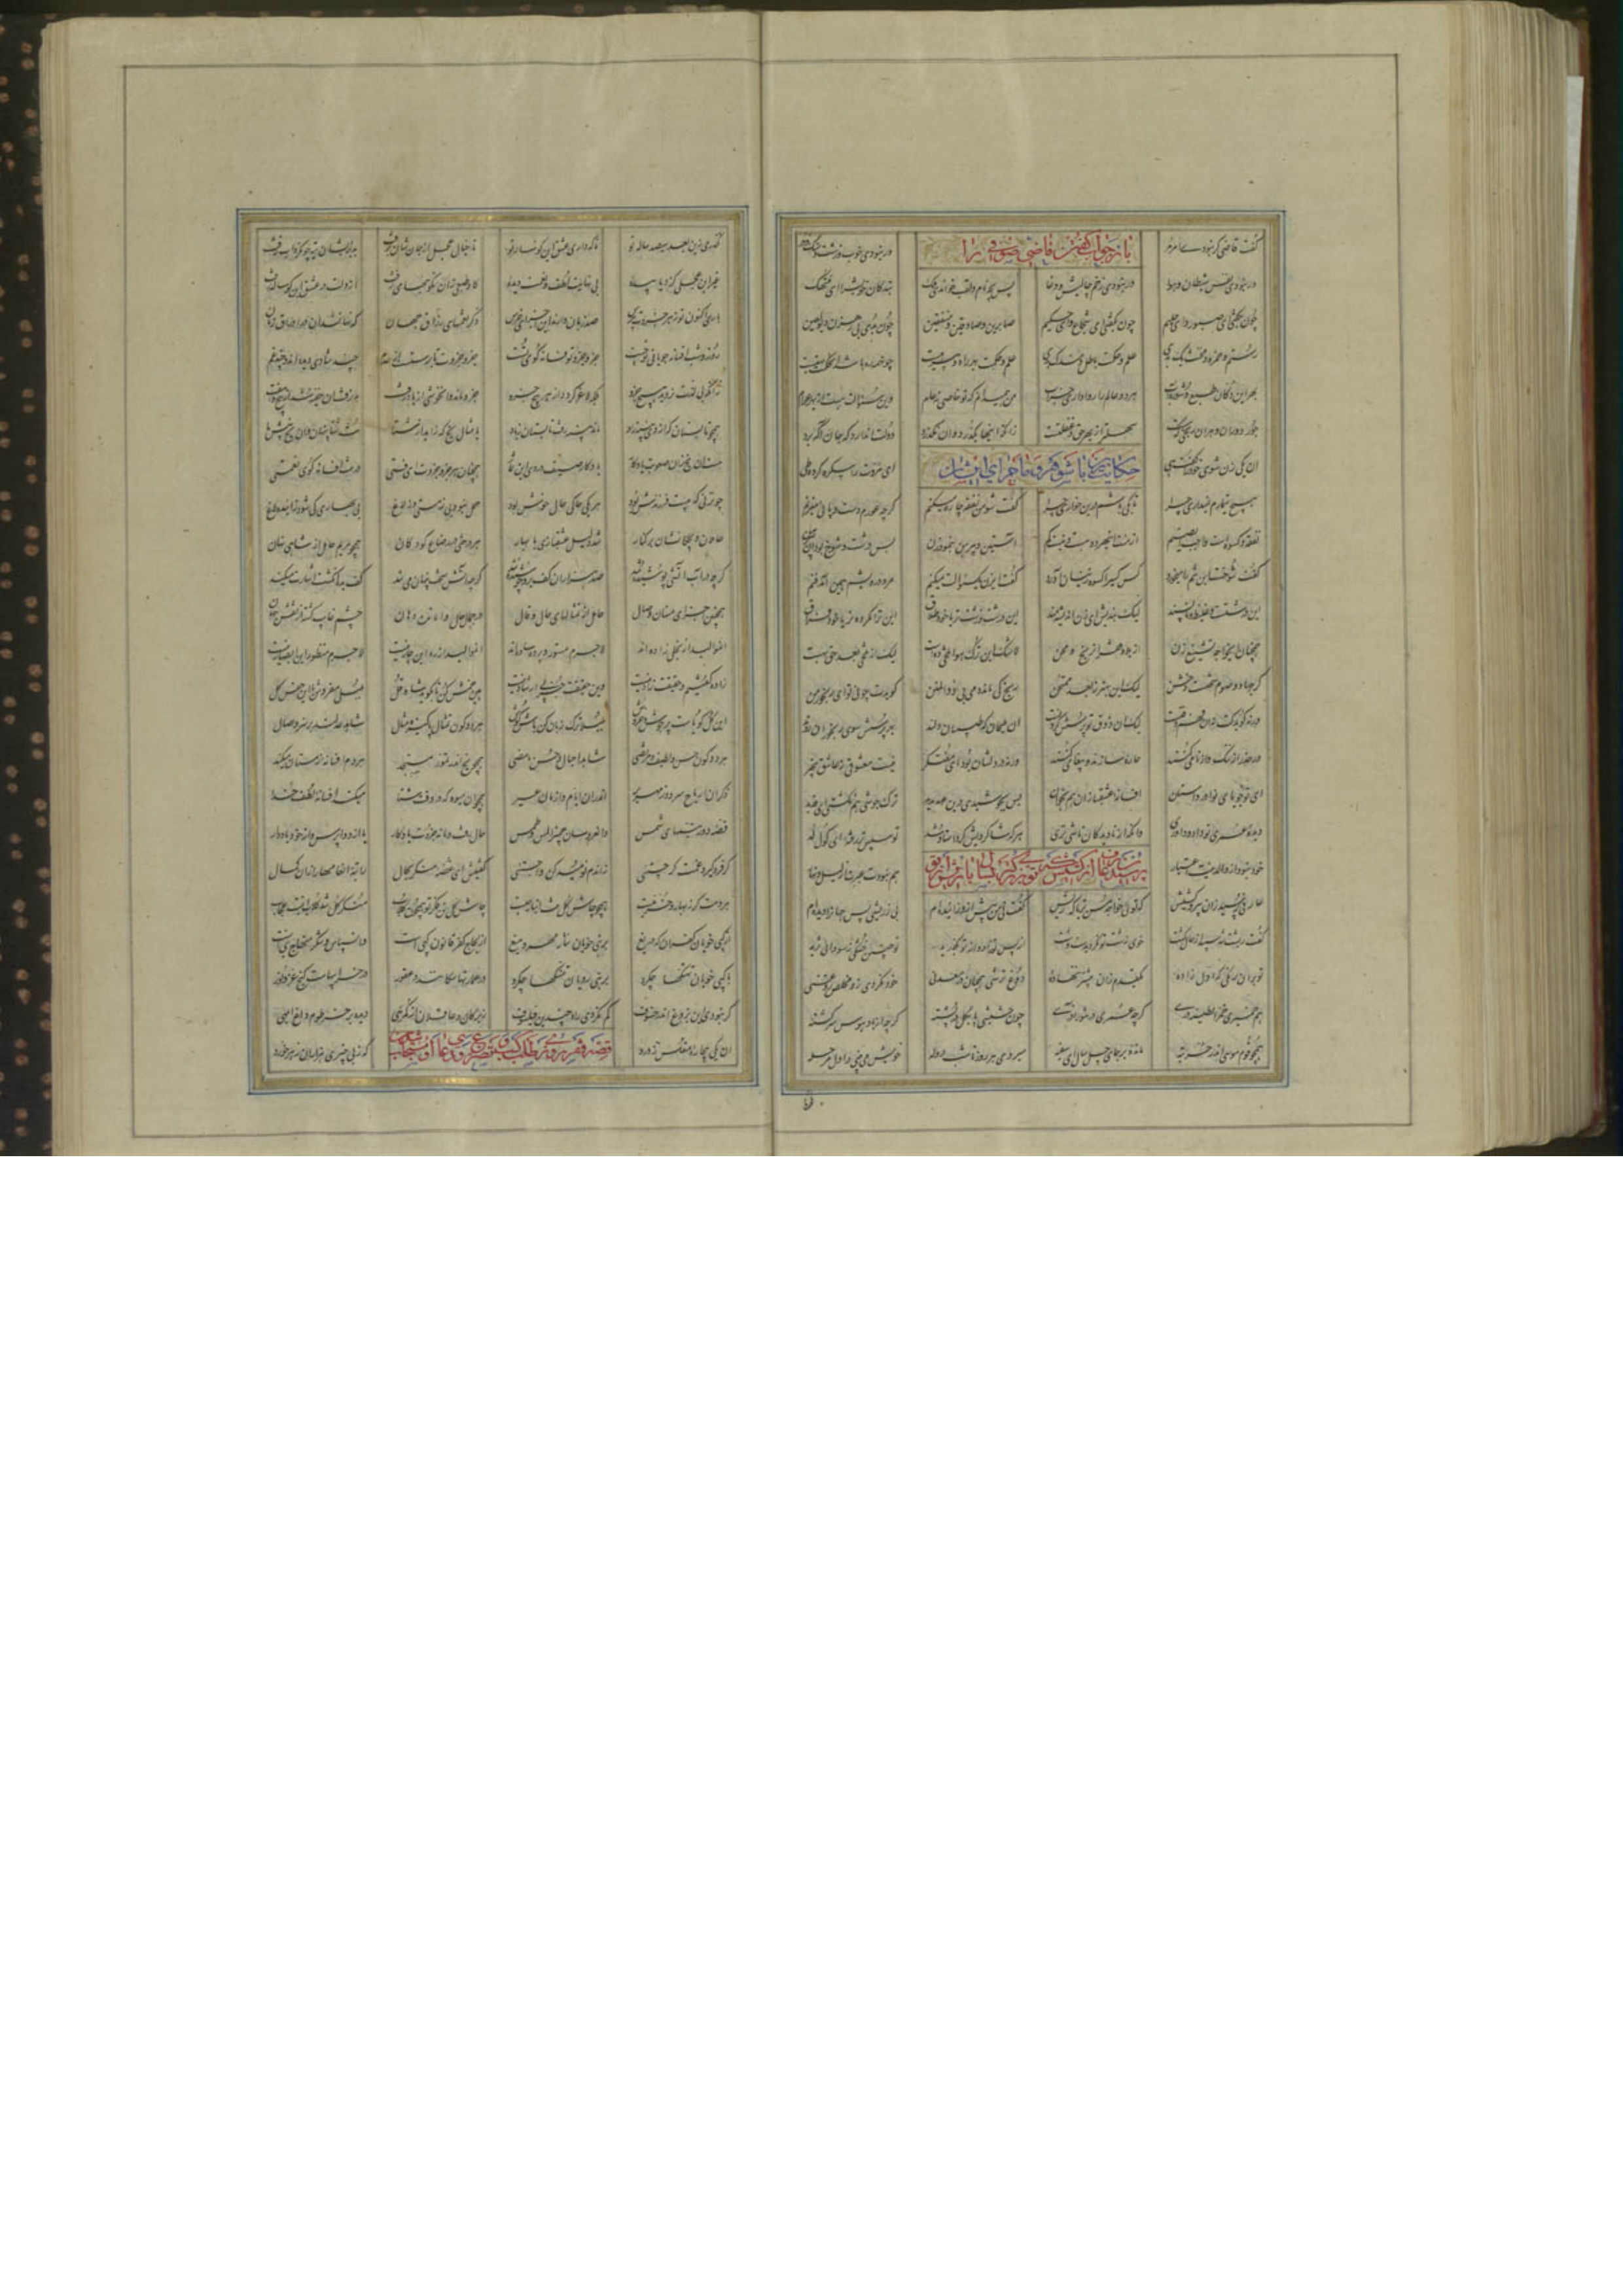 گفت قاضی گر نبودی امر مر باز جواب گفتن قاضی صوفی را ور نبودی خوب و زشت و سنگ و در
ور نبودی نفس و شیطان و هوا ور نبودی زخم و چالیش و وغا پس بچه نام و لقب خواندی ملک بندگان خویش را ای منهتک
چون بگفتی ای صبور و ای حلیم چون بگفتی ای شجاع و ای حکیم صابرین و صادقین و منفقین چون بدی بی رهزن و دیو لعین
رستم و حمزه و مخنث یک بدی علم و حکمت باطل و مندک بدی علم و حکمت بهر راه و بی رهیست چون همه ره باشد آن حکمت تهیست
بهر این دکان طبع شوره آب هر دو عالم را روا داری خراب من همی دانم که تو خاصی نه خام وین سؤالت هست از بهر عوام
جور دوران و هر آن رنجی که هست سهلتر از بعد حق و غفلتست زانکه اینها بگذرد و آن نگذرد دولت آن دارد که جان آگه برد
آن یکی زن شوی خود را گفت هی حکایت با شوهر و ماجرای ایشان ای مروت را بیک ره کرده طی
هیچ تیمارم نمیداری چرا تا بکی باشم درین خواری چرا گفت شو من نفقه چاره میکنم گرچه عورم دست و پایی میزنم
نفقه و کسوه است واجب ای صنم از منت این هر دو هست و نیست کم آستین پیرهن بنمود زن بس درشت و پر وسخ بود پیرهن
گفت از سختی تنم را میخورد کس کسی را کسوه زین سان آورد گفت ای زن یک سؤالت میکنم مرد درویشم همین آمد فنم
این درشتست و غلیظ و ناپسند لیک بندیش ای زن اندیشه مند این درشت و زشت تر یا خود طلاق این ترا مکروه تر یا خود فراق
همچنان ای خواجه تشنیع زن از بلا و فقر و از رنج و محن لاشک این ترک هوا تلخی دهست لیک از تلخی بعد حق بهست
گر جهاد و صوم سختست و خشن لیک این بهتر ز بعد ممتحن رنج کی ماند دمی که ذوالمنن گویدت چونی تو ای رنجور من
ور نگوید کت نه آن فهم و فنست لیک آن ذوق تو پرسش کردنست آن ملیحان که طبیبان دلند بهر پرسش سوی رنجوران
ور حذر از ننگ و از نامی کنند چاره سازند و پیغامی کنند ورنه در دلشان بود آن مفتکر نیست معشوقی ز عاشق بی خبر
ای تو جویای نوادر داستان افسانه عشقبازان هم بخوان بس بجوشیدی درین عهد مدید ترک جوشی هم نگشتی ای قدید
دیده عمری تو داد و داوری وانگه از نادیدگان ناشی تری هر که شاگردیش کرد استاد شد تو سپس تر رفته ای کور لد
خود نبود از والدینت اعتبار هم نبودت عبرت از لیل و نهار
عارفی پرسید از آن پیر کشیش که تویی خواجه مسن تر یا که ریش گفت نی من پیش ازو زاییده ام بی ز ریشی بس جهان را دیده ام
گفت ریشت شد سپید از حال گشت خوی زشت تو نگردیدست وشت او پس از تو زاد و از تو بگذرید تو چنین خشکی ز سودای ثرید
تو بر آن رنگی که اول زاده یک قدم زان پیشتر ننهاده دوغ ترشی همچنان در معدنی خود نگردی زو مخلص روغنی
هم خمیری خمر طینه دری گرچه عمری در تنور آذری چون حشیشی پا بگل بر پشته گرچه از باد هوس سرگشته
همچو قوم موسی اندر حر تیه مانده بر جای چل سال ای سفیه میروی هر روز تا شب هروله خویش می بینی در اول مرحله
نگذری زین بعد سیصد ساله تو تا که داری عشق آن گوساله تو تا خیال عجل از جانشان نرفت بد بریشان تیه چون گرداب تفت
غیر این عجلی کزو یابیده بی نهایت لطف و نعمت دیده گاو طبعی زان نکوییهای زفت از دلت در عشق این گوساله رفت
باری اکنون تو ز هر جزوت بپرس صد زبان دارند این اجزای خرس ذکر نعمتهای رزاق جهان که نهان شد آن در اوراق زمان
روز و شب افسانه جویانی تو چست جزو جزو تو فسانه گوی تست جزو جزوت تا برستست از عدم چند شادی دیده اند و چند غم
زانکه بی لذت نروید هیچ جزو بلکه لاغر گردد از هر پیچ جزو جزو ماند و آن خوشی از یاد رفت بل نرفت آن خفیه شد از پنج و هفت
همچو تابستان که از وی پنبه زاد ماند پنبه رفت تابستان ز یاد یا مثال یخ که زاید از شتا شد شتا پنهان و آن یخ پیش ما
هست آن یخ زان صعوبت یادگار یادگار صیف در دی این ثمار همچنان هر جزو جزوت ای فتی در تنت افسانه گوی نعمتی
چون زنی که بیست فرزندش بود هر یکی حاکی حال خوش بود حمل نبود بی ز مستی و ز لاغ بی بهاری کی شود زاینده باغ
حاملان و بچگانشان بر کنار شد دلیل عشقبازی با بهار هر درختی در رضاع کودکان همچو مریم حامل از شاهی نهان
گرچه در آب آتشی پوشیده شد صد هزاران کف برو جوشیده شد گرچه آتش سخت پنهان می تند کف بده انگشت اشارت میکند
همچنین اجزای مستان وصال حامل از تمثالهای حال و قال در جمال حال وامانده دهان چشم غایب گشته از نقش جهان
آن موالید از تجلی زاده اند لاجرم مستور پرده ساده اند آن موالید از ره این چار نیست لاجرم منظور این ابصار نیست
زاده گفتیم و حقیقت نزاد وین عبارت جز پی ارشاد نیست هین خمش کن تا بگوید شاه قل بلبلی مفروش با این جنس گل
این گل گویاست پر جوش و خروش بلبلا ترک زبان کن باش گوش هر دو گون تمثال پاکیزه مثال شاهد عدلند بر سر وصال
هر دو گون حسن لطیف مرتضی شاهد احبال و حشر ما مضی همچو یخ کاندر تموز مستجد هر دم افسانه زمستان میکند
ذکر آن اریاح سرد و زمهریر اندر آن ایام و ازمان عسیر همچو آن میوه که در وقت شتا میکند افسانه لطف خدا
قصه دور تبسمهای شمس وان عروسان چمن را لمس و طمس حال رفت و ماند جزوت یادگار یا ازو واپرس یا خود یاد آر
چون فرو گیرد غمت گر چستیی زان دم نومید کن وا جستیی گفتیش ای غصه منکر بحال راتبه انعامها را زان کمال
گر بهر دم نت بهار و خرمیست همچو چاش گل تنت انبار چیست چاش گل تن فکر تو همچون گلاب منکر گل شد گلاب اینت عجاب
از کپی خویان کفران که دریغ بر نبی خویان نثار مهر و میغ آن لجاج کفر قانون کپیست وان سپاس و شکر منهاج نبیست
با کپی خویان تهتکها چه کرد با نبی رویان تنسکها چه کرد در عمارتها سگانند و عقور در خرابیهاست گنج عز و نور
گر نبودی این بزوغ اندر خسوف گم نکردی راه چندین فیلسوف زیرکان و عاقلان از گمرهی دیده بر خرطوم داغ ابلهی
آن یکی بیچاره مفلس ز درد قصه فقیر روزی طلب که ز بی چیزی هزاران زهر خورد